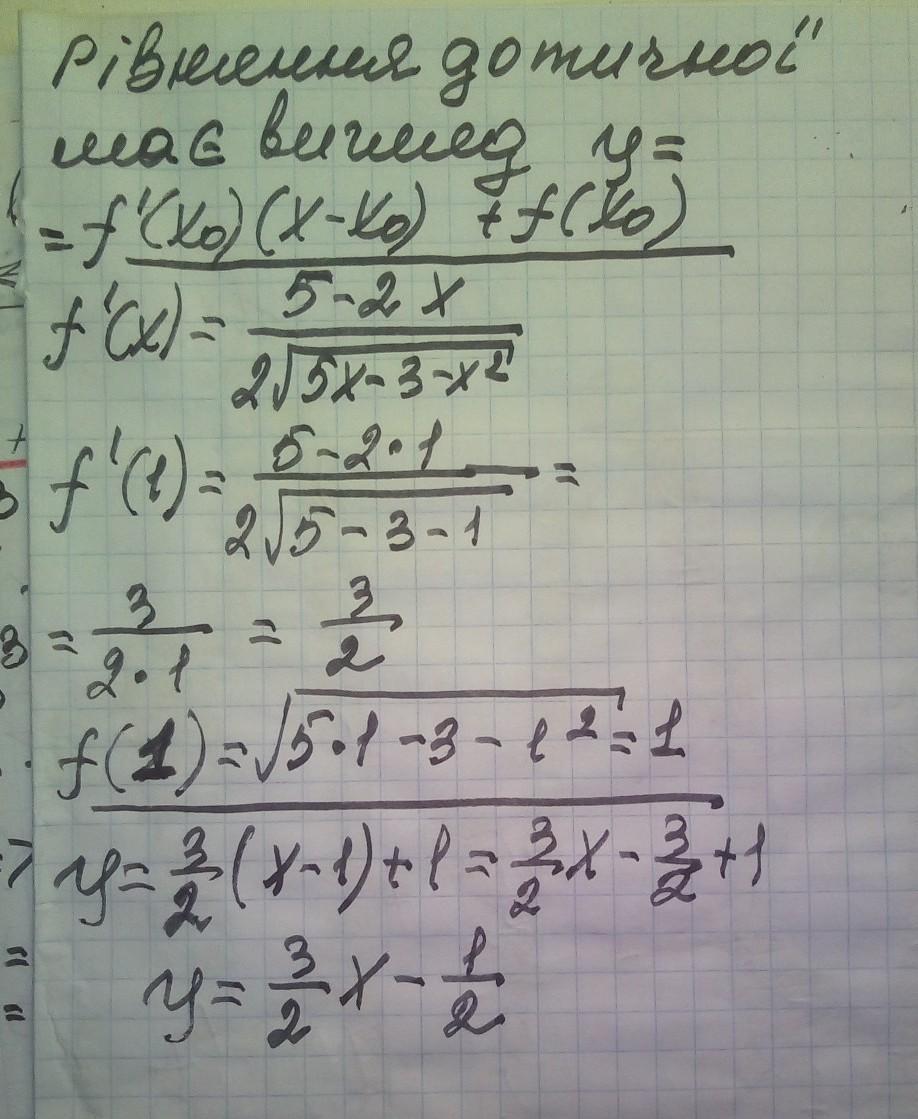 Рівняння дотичної
має вигляд y=
=f'(x₀)(x-x₀) +f(x₀)
f'(x)= (5-2x)/(2√(5x-3-x²))
f'(1)= (5-2·1)/(2√(5-3-1)) =
= 3/(2·1) = 3/2
f(1)=√(5·1-3-1²)=1
y= 3/2(x-1)+1= 3/2x- 3/2+1
y= 3/2x- 1/2